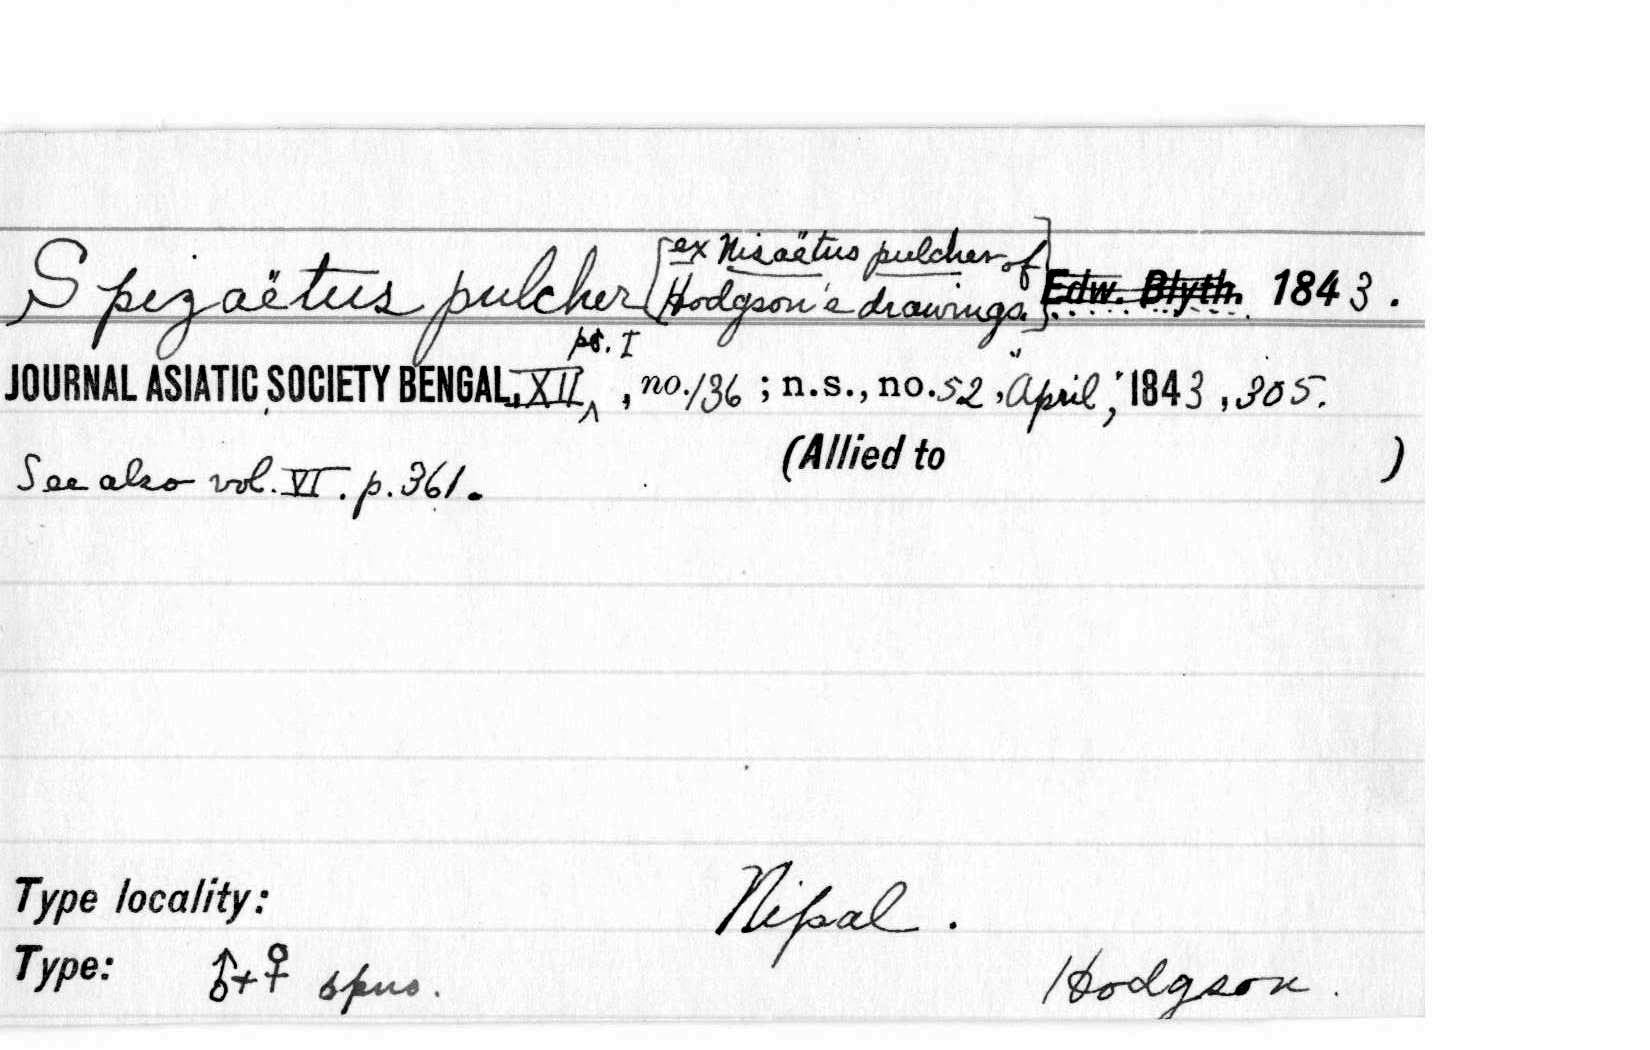 Spizaëtus pulcher [ex Nisaëtus pulcher of
Hodgson's drawings.] Edw. Blyth. 1843.
pt. I
JOURNAL ASIATIC SOCIETY BENGAL, XII, no. 136; n.s., no. 52, "April," 1843, 305.
(Allied to )
See also vol. VI. p. 361.
Type locality: Nipal.
Type: ♂+♀ spns. Hodgson.